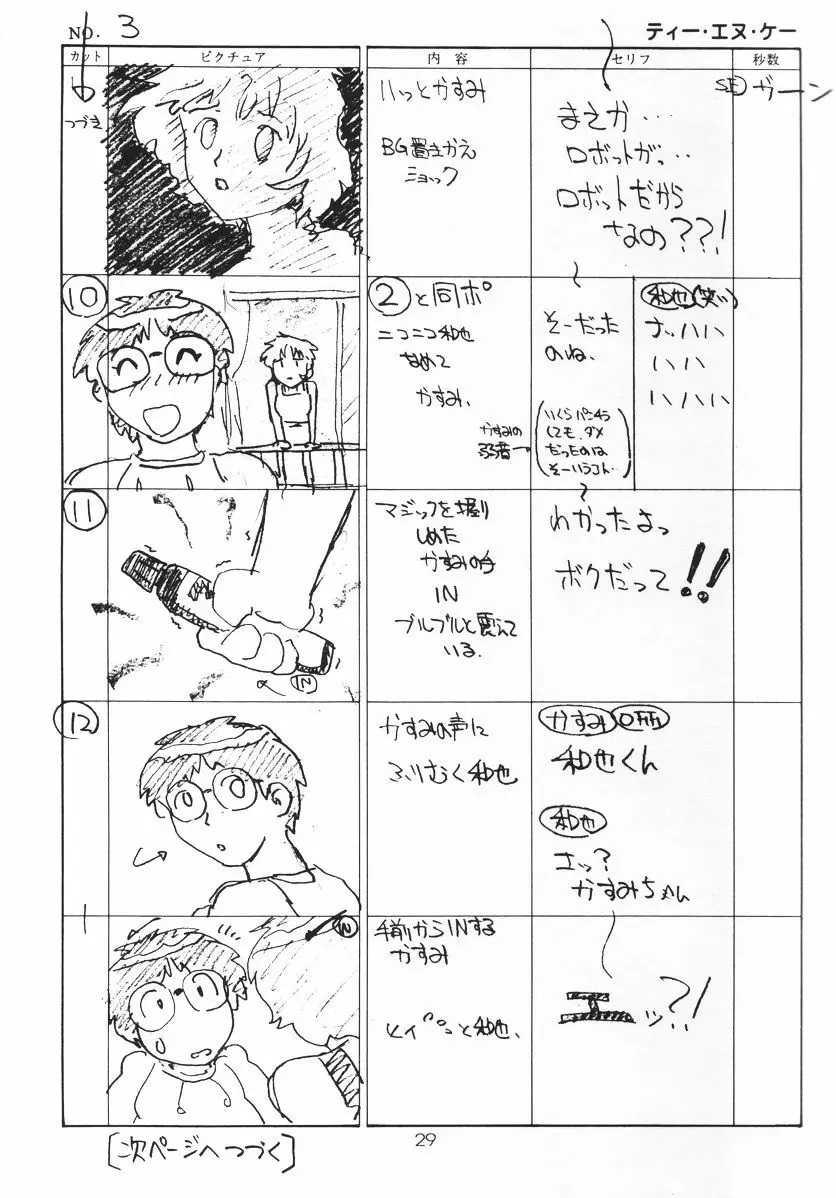 NO. 3
ティー・エヌ・ケー
カット
ピクチュア
内容
セリフ
秒数
つづき
ハッとかすみ
BG置きかえ
ショック
まえが…
ロボットが…
ロボットだから
なの??!
SE ガーン
10
②と同ポ
ニコニコ和也
なめて
かすみ、
そーだった
のね、
かすみの
(いくらパンチラ
しても、ダメ
だったのは
そーいうコト…)
和也(笑い)
ハハ
ハハハ
11
マジックを握り
しめた
かすみの手
IN
ブルブルと震えて
いる.
IN
わかったよっ
ボクだって!!
12
かすみの声に
ふりむく和也
かすみ
和也くん
和也
えッ?
かすみちゃん
IN
手前からINする
かすみ
と和也、
エッ?!
[次ページへつづく]
29